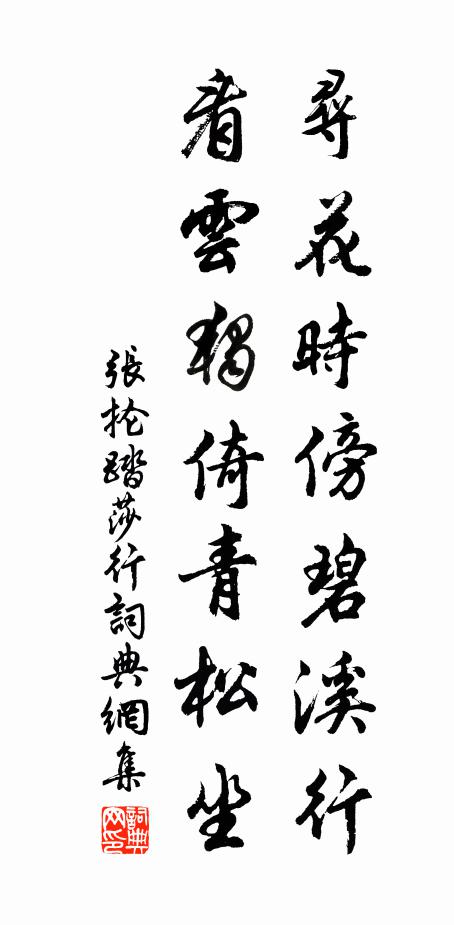 尋花時傍碧溪行
看雲獨倚青松坐
張抡踏莎行詞典網集
詞典网印